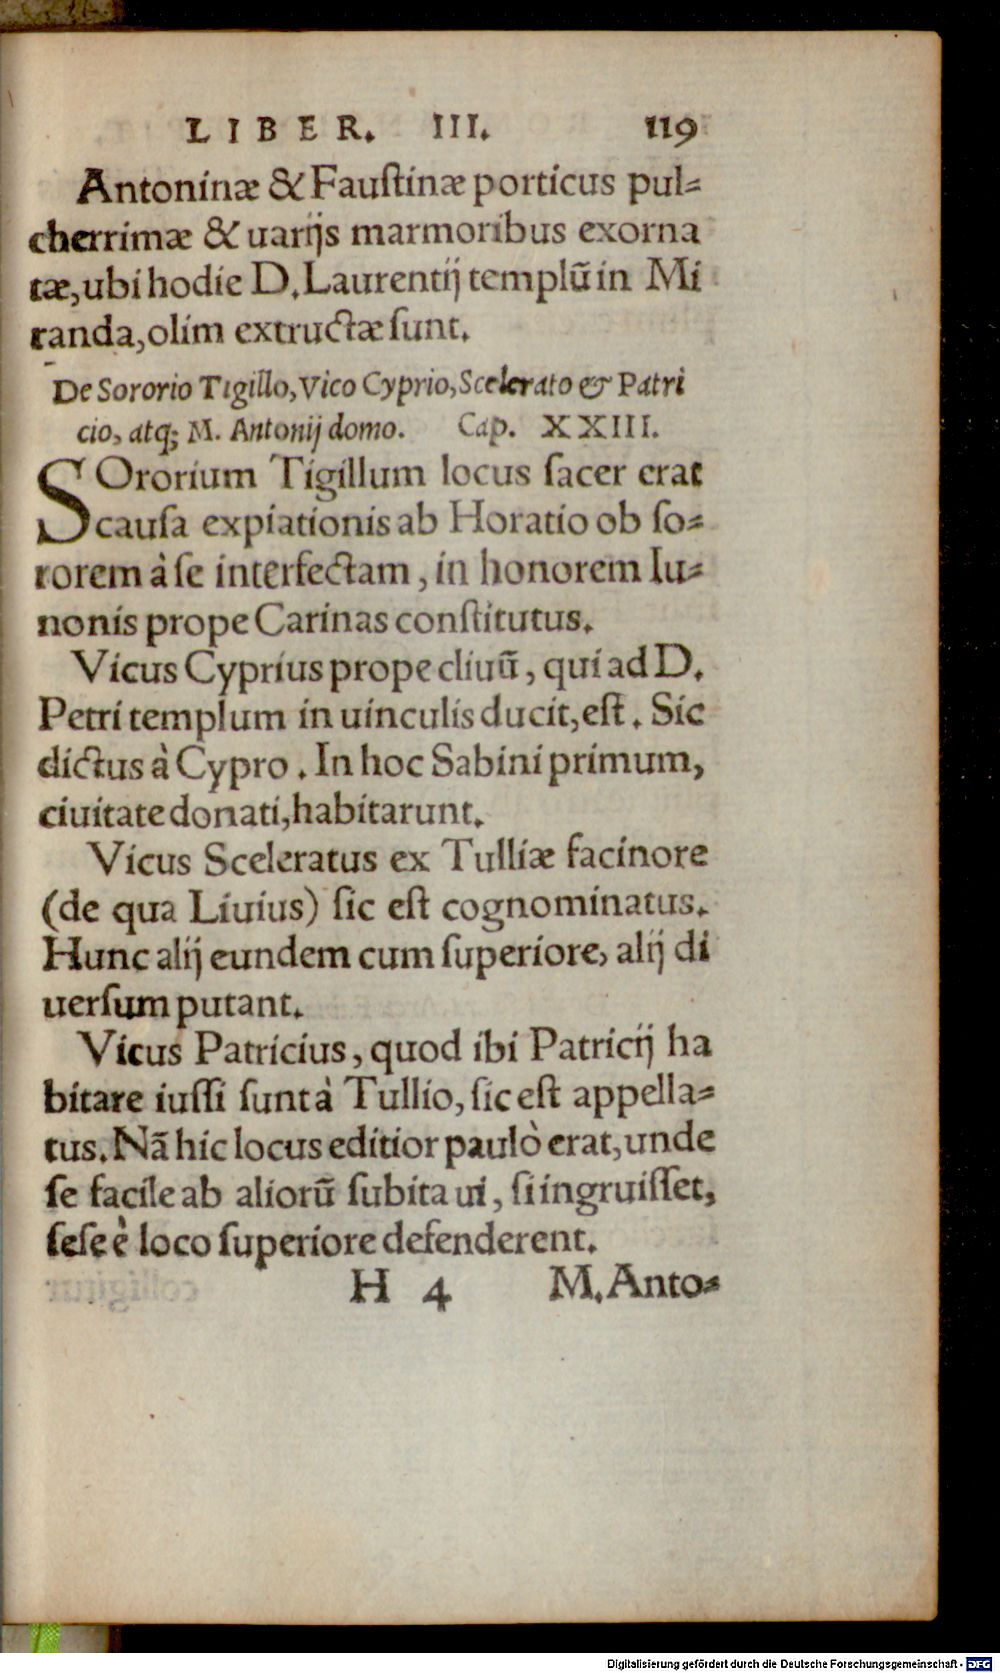 LIBER. III. 119
Antoninæ & Fauſtinæ porticus pul-
cherrimæ & uarijs marmoribus exorna
tæ, ubi hodie D. Laurentij templũ in Mi
randa, olim extructæ ſunt.
De Sororio Tigillo, Vico Cyprio, Scelerato & Patri
cio, atq; M. Antonij domo. Cap. XXIII.
SOrorium Tigillum locus ſacer erat
cauſa expiationis ab Horatio ob ſo-
rorem à ſe interfectam, in honorem Iu-
nonis prope Carinas conſtitutus.
Vicus Cyprius prope cliuũ, qui ad D.
Petri templum in uinculis ducit, eſt. Sic
dictus à Cypro. In hoc Sabini primum,
ciuitate donati, habitarunt.
Vicus Sceleratus ex Tulliæ facinore
(de qua Liuius) ſic eſt cognominatus.
Hunc alij eundem cum ſuperiore, alij di
uerſum putant.
Vicus Patricius, quod ibi Patricij ha
bitare iuſſi ſunt à Tullio, ſic eſt appella-
tus. Nã hic locus editior paulò erat, unde
ſe facile ab aliorũ ſubita ui, ſi ingruiſſet,
ſeſe è loco ſuperiore defenderent.
H 4 M. Anto-
Digitalisierung gefördert durch die Deutsche Forschungsgemeinschaft - DFG